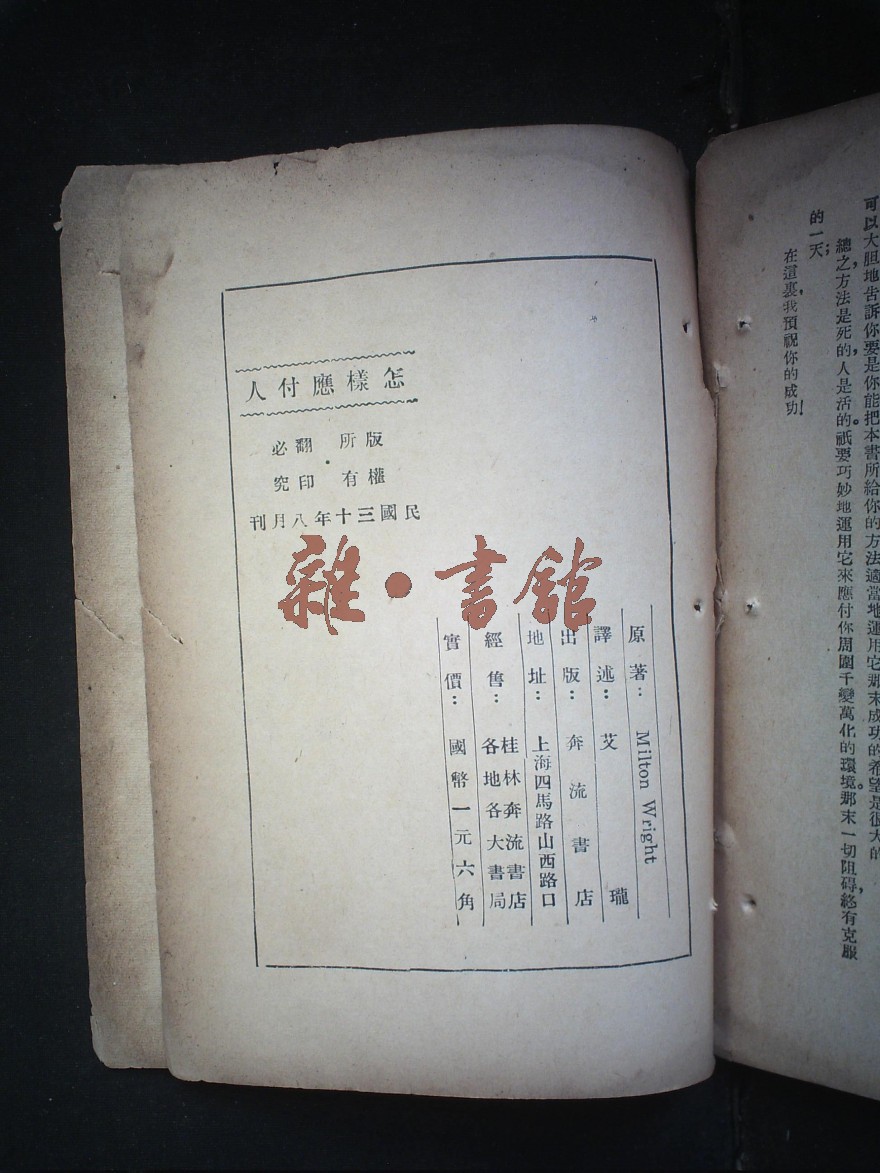 可以大胆地告訴你要是你能把本書所給你的方法適當地運用它那末成功的希望是很大的
總之,方法是死的,人是活的。祇要巧妙地運用它來應付你周圍千變萬化的環境。那末一切阻碍,終有克服
的一天;
在這裏,我預祝你的成功!
怎樣應付人
版權 所有
翻印 必究
民國三十年八月刊
原著: Milton Wright
譯述: 艾瓏
出版: 奔流書店
地址: 上海四馬路山西路口
經售: 桂林奔流書店
各地各大書局
實價: 國幣一元六角
雜·書館